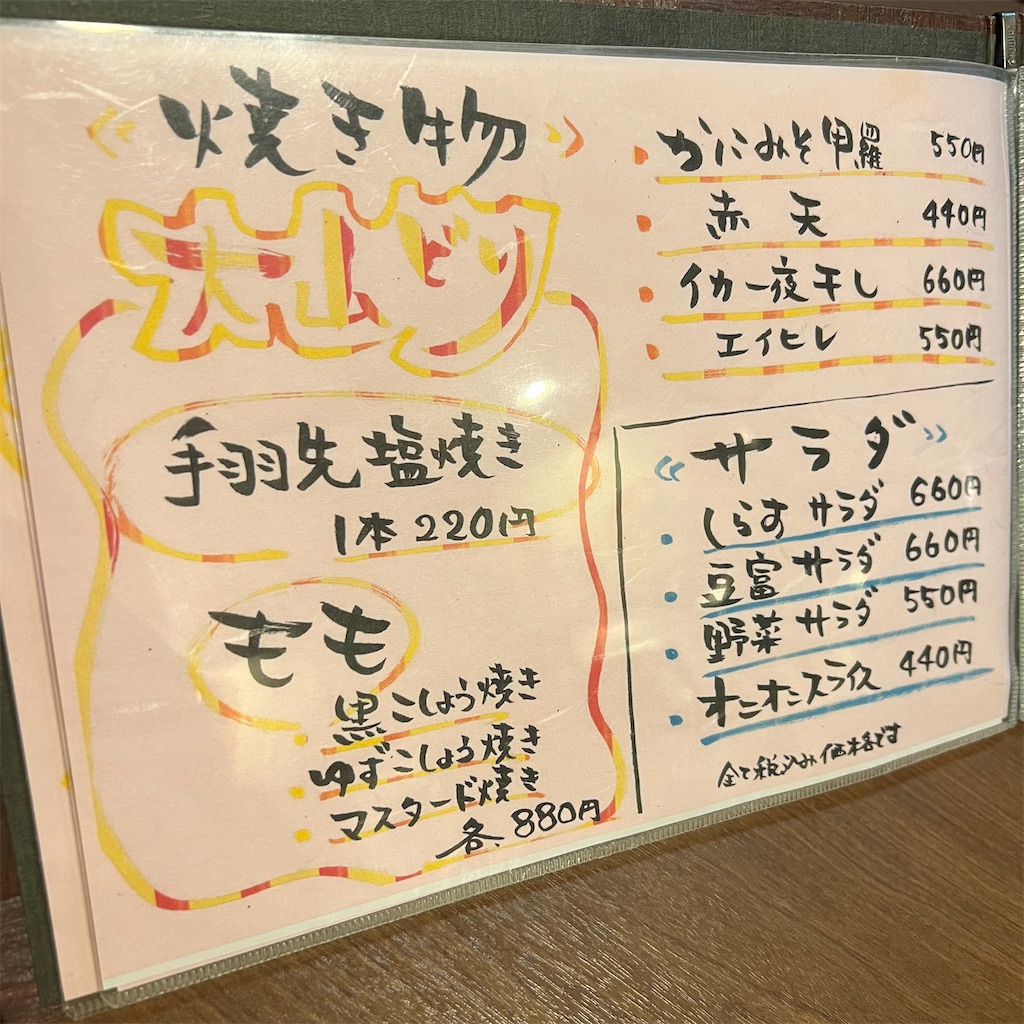 焼き物
大山ビリ
手羽先塩焼き
1本 220円
もも
黒こしょう焼き
ゆずこしょう焼き
マスタード焼き
各 880円
かにみそ甲羅 550円
赤天 440円
イカ一夜干し 660円
エイヒレ 550円
サラダ
しらす サラダ 660円
豆富 サラダ 660円
野菜 サラダ 550円
オニオンスライス 440円
全て税込み価格です